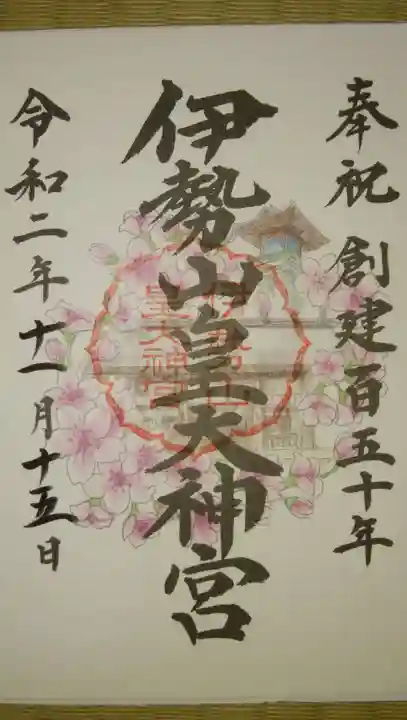 奉祝 創建百五十年
伊勢山皇大神宮
令和二年十一月十五日